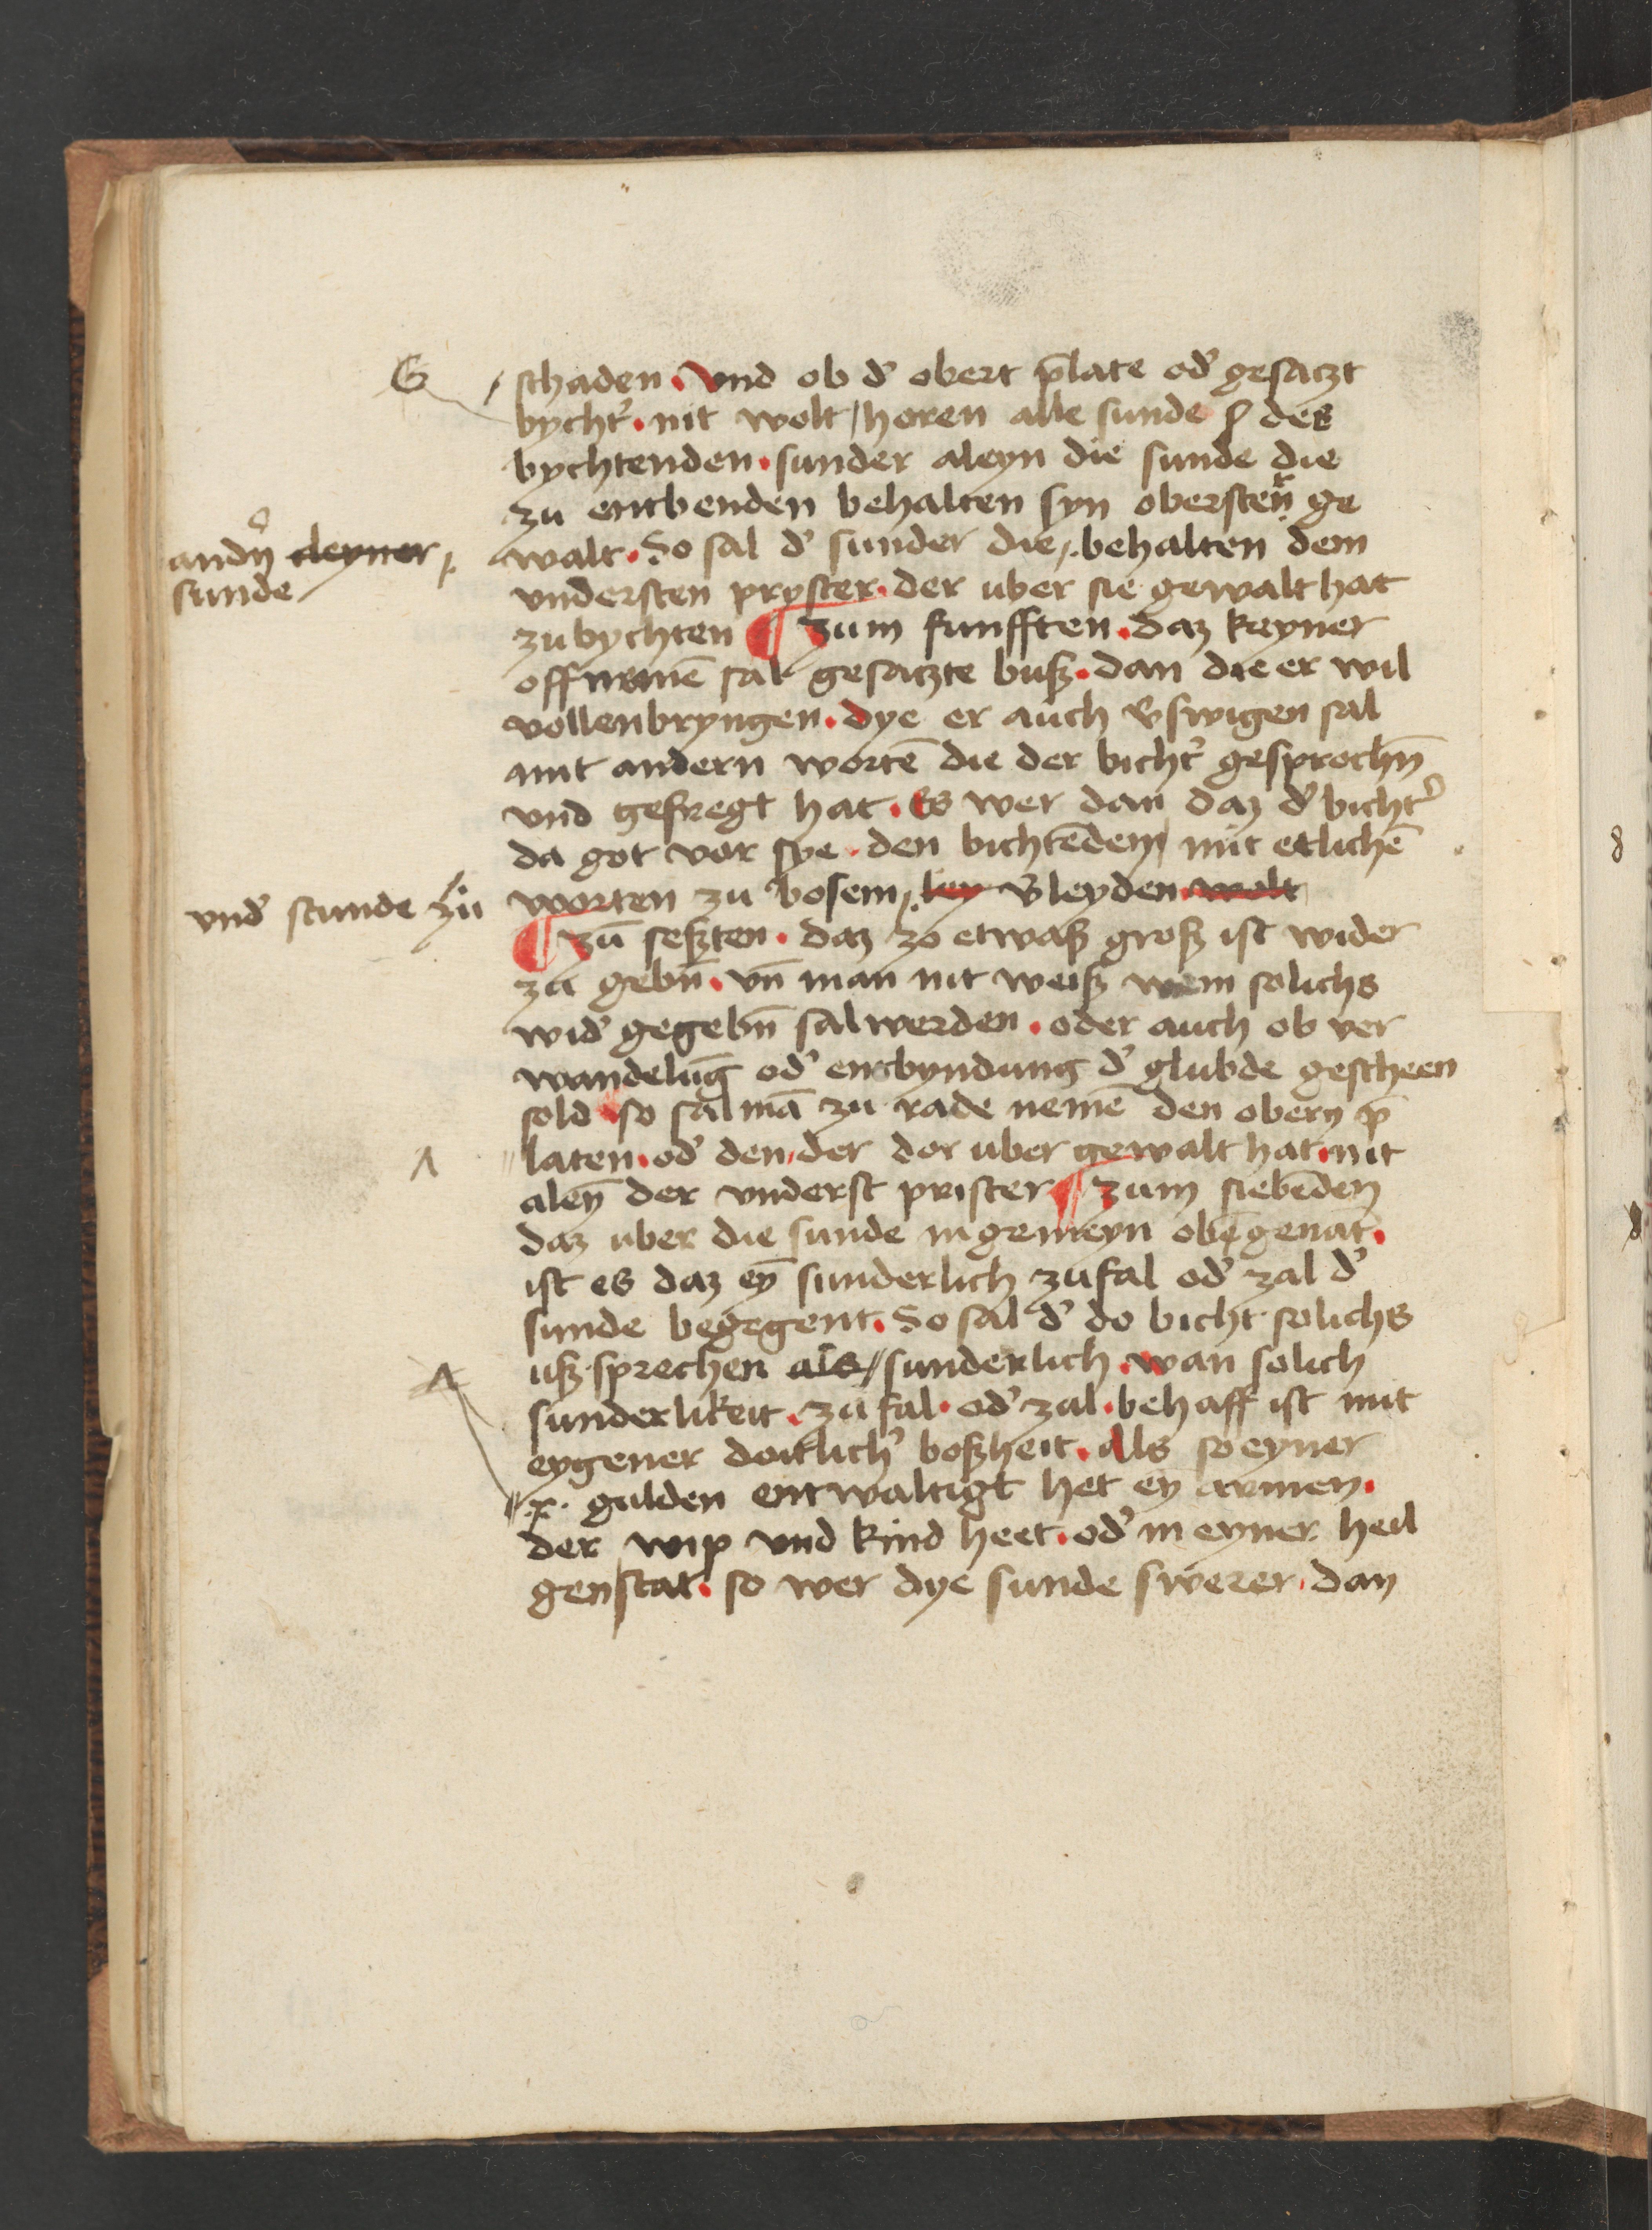 G
schaden. Vnd ob d' obert p̄late od' gesatzt
bycht'. nit wolt / horen alle sunde des
bychtenden. sunder aleyn die sunde die
zu entbenden behalten syn obersten ge
walt. So sal d' sunder die behalten dem
andn' cleyner
sunde
vndersten pryster. der uber sie gewalt hat
zu bychten ¶ Zum funfften. daz keyner
sal gesatzte buß. dan die er wil
vollenbryngen. dye er auch v̄swigen sal
mit andern wortē die der bicht' gesprochn̄
vnd gefregt hat. Es wer dan daz d' bicht'
da got vor sye. den bichtēdem mit etlichē
vnd' stunde zu
worten zu bosem ley v̄leyden wolt
¶ Zū seßten. daz zo etwaß groß ist wider
zu gebn̄. vn̄ man nit weiß wem solichs
wid' gegebn̄ sal werden. oder auch ob ver
wandelūg od' entbyndung d' glubde gescheen
sold. so sal mā zu rade nemē den obern p̄
laten. od' den der dor uber gewalt hat. nit
aleyn̄ der vnderst prister ¶ Zum siebēden
daz uber die sunde in gemeyn obēgenāt.
ist es daz eȳ sunderlich zufal od' zal d'
sunde begegent. So sal d' do bicht solichs
uß sprechen als sunderlich. wan solich
sunderlikeit. zu fal. od' zal. behafft ist mit
eygener dotlich' boßheit. Als so eyner
x. gulden entwaltigt het eȳ armen.
der wip vnd kind heet. od' in eyner heil
gen stat. so wer dye sunde swerer. dan